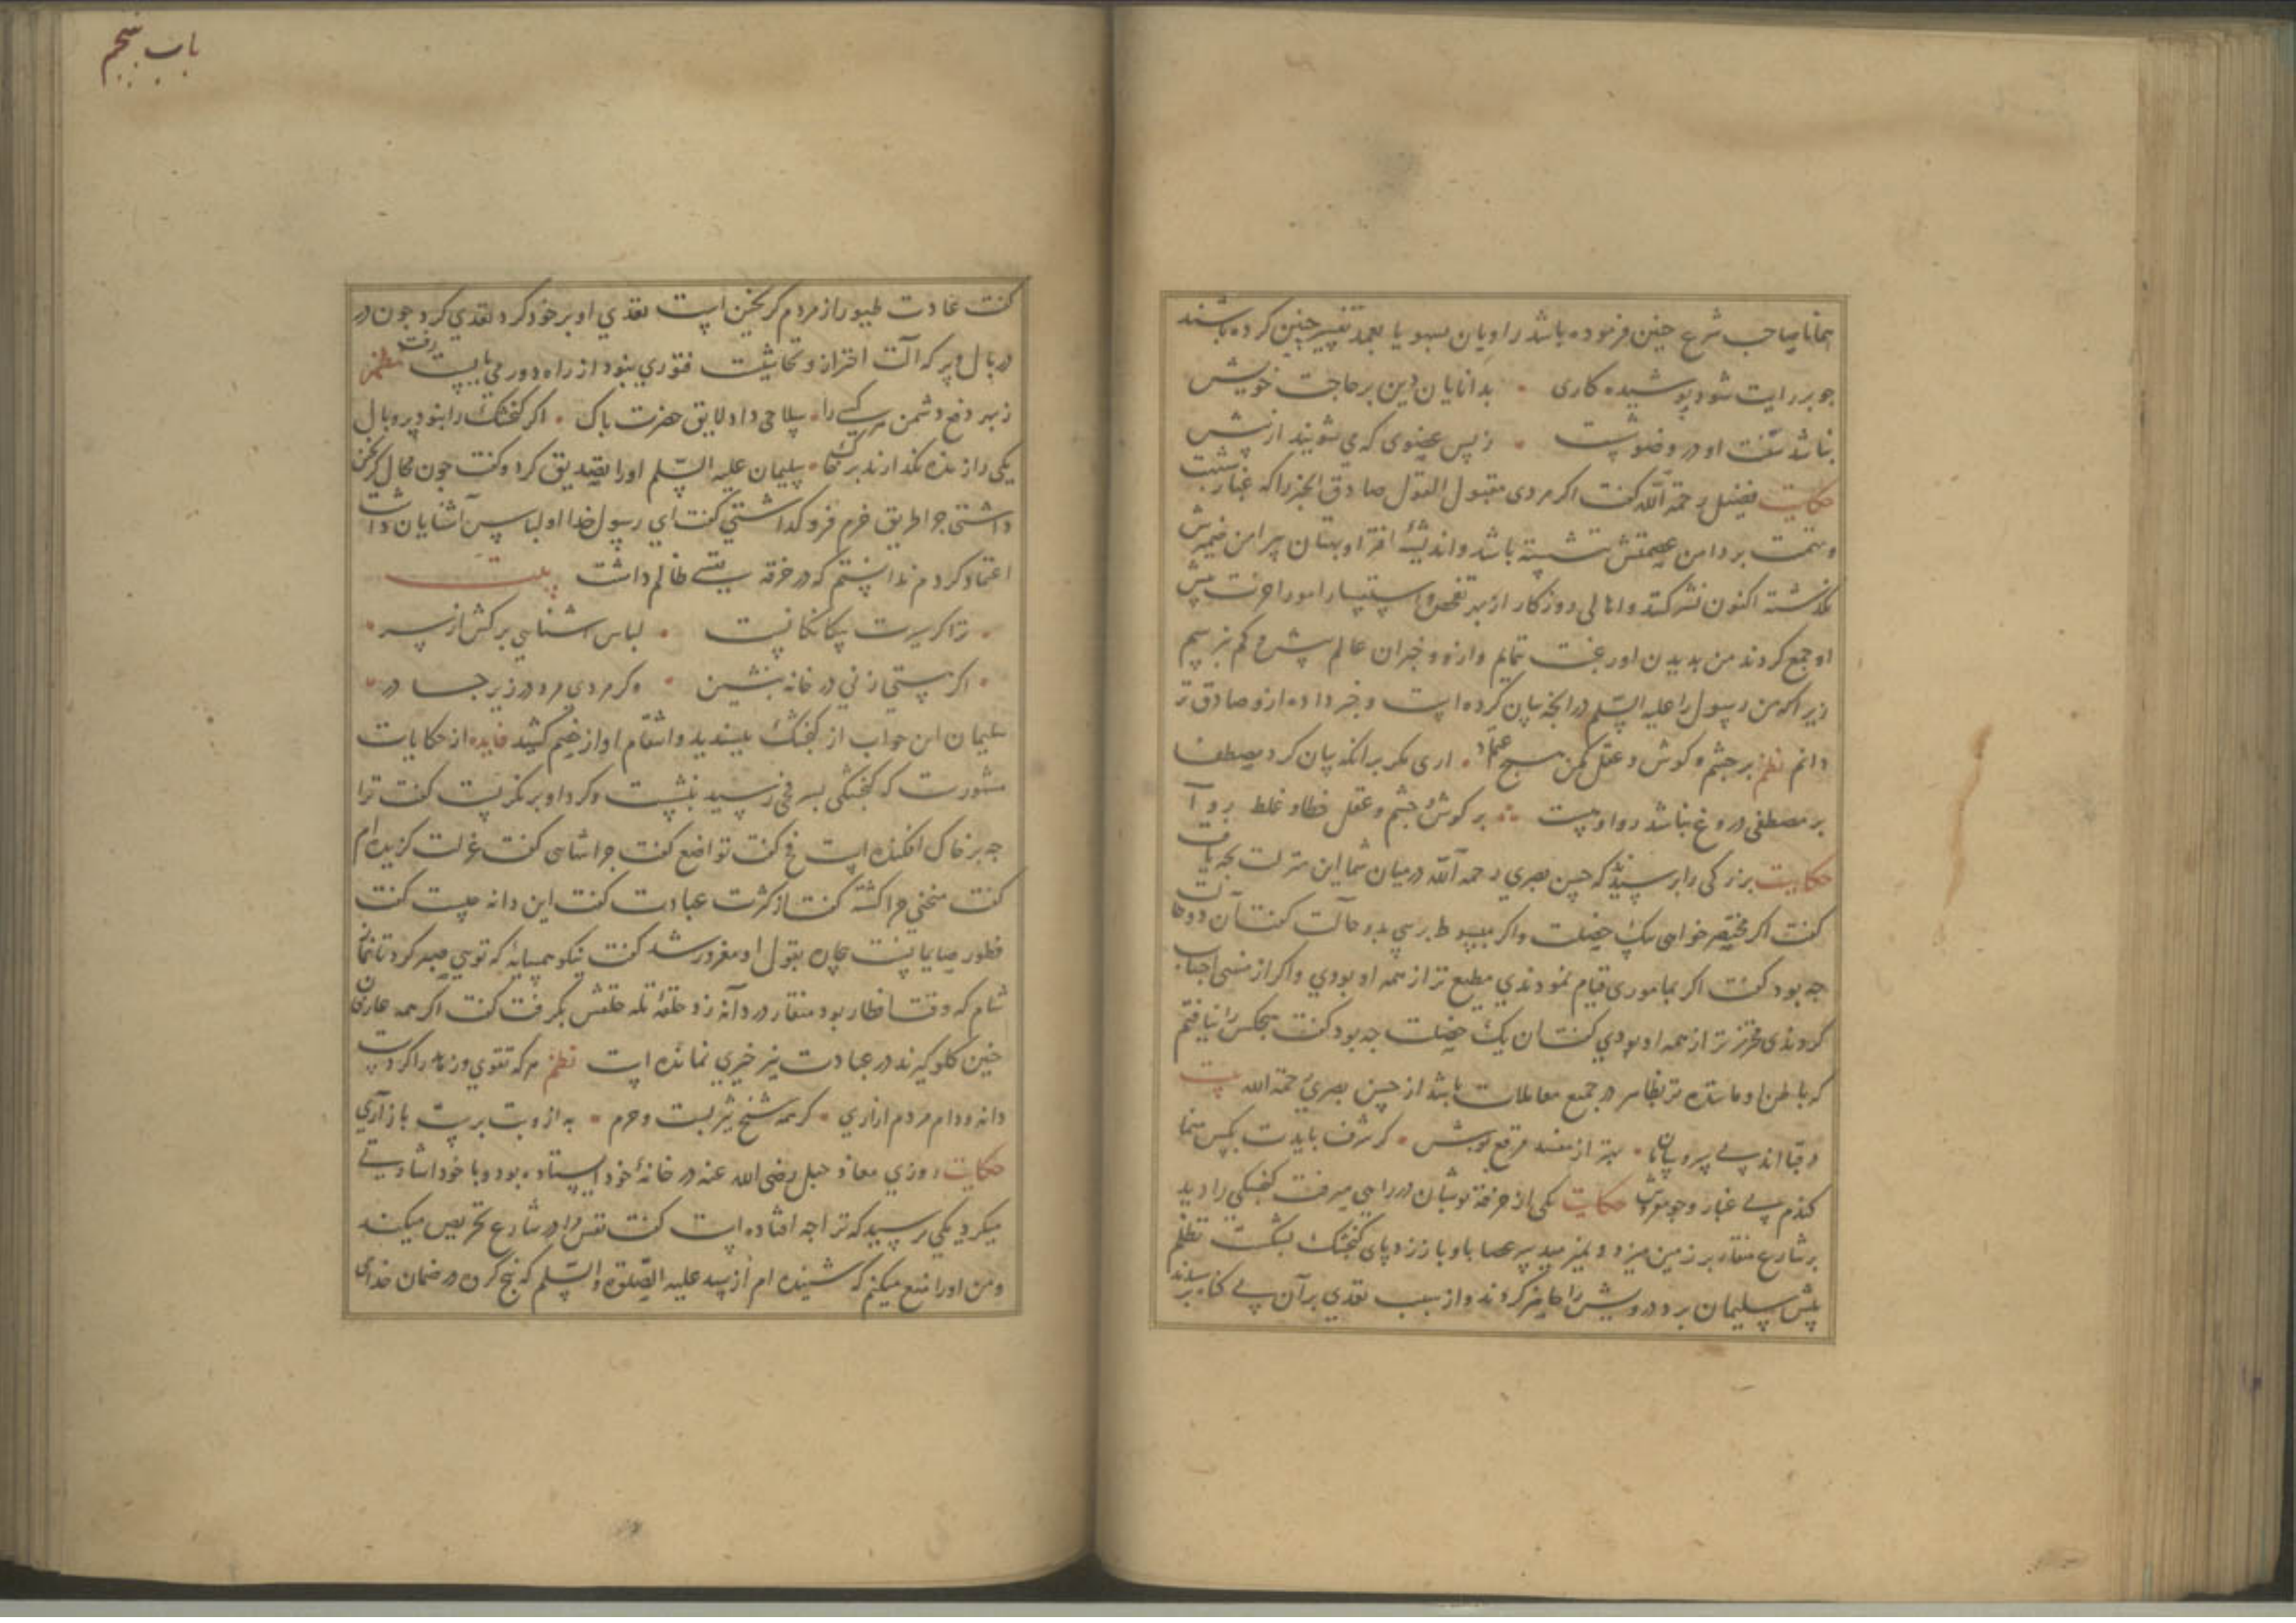 همانا صاحب شرع چنین فرموده باشد راویان بسهو یا بعمد تغییر چنین کرده باشند
جو بر رایت شود پوشیده کاری • بدانایان دین بر حاجت خویش
نباشد سنت او در وضو شست • ز پس عضوی که می شویند از پیش
حکایت فضیل رحمة الله کفت اکر مردی مقبول القول صادق الخبر را که غبار
وتهمت بر دامن عصمتش ننشسته باشد و اندیشهٔ افترا و بهتان پیرامن ضمیرش
نکذشته اکنون نشر کنند و اهالی روزکار از بهر تفحص و استفسار امور آخرت پیش
او جمع کردند من بدیدن او رغبت ننمایم و از و خبران عالم بیش و کم نپرسم
زیرا که من رسول را علیه السلم در انچه بیان کرده است و خبر داده ازو صادق تر
دانم نظم بر چشم و کوش و عقل مکن هیچ اعتماد • اری مکر برانکه بیان کرد مصطفا
بر مصطفی دروغ نباشد روا و هست • بر کوش و چشم و عقل خطا و غلط روا
حکایت بزرکی را پرسیدند که حسن بصری رحمه الله در میان شما این منزلت بچه یافت
کفت اکر مختصر خواهی بیک خصلت و اکر مبسوط پرسی بدو حالت کفت آن دو حالت
چه بود کفت اکر بماموری قیام نمودندی مطیع تر از همه او بودی و اکر از منهی اجتناب
کردندی محترز تر از همه او بودی کفت آن یک خصلت چه بود کفت هیچکس را نیافتم
که باطن او ماننده تر بظاهر در جمیع معاملات باشد از حسن بصری رحمة الله بیت
در قبا اند پی پر و پایان • بهتر از مفسد مرقع پوش • کر شرف بایدت بکس منما
کندم پی غبار و جو مفروش حکایت یکی از خرقه پوشان در راهی میرفت کنجشکی را دید
بر شارع منقار بر زمین میزد و نمیرمید پیر عصا باو باز زد پای کنجشک بشکست تظلم
پیش سلیمان برد درویش را حاضر کردند و از سبب تعدی بر آن بی کناه پرسیدند
باب پنجم
کفت عادت طیور از مردم کریختن است تعدی او بر خود کرد تعدی کرد چون در
در بال و پر که آلت احتراز و تحاشیست فتوری نبود از راه دور می بایست رفت نظم
ز بهر دفع دشمن هر کسی را • سلاحی داد لایق حضرت پاک • اکر کنجشک را نبود پر و بال
یکی را زنده نکذارند بر خاک • سلیمان علیه السلم او را تصدیق کرد و کفت چون مجال کریختن
داشتی چرا طریق حزم فرو کذاشتی کفت ای رسول خدا او لباس آشنایان داشت
اعتماد کردم ندانستم که در خرقه نفسی ظالم داشت بیت
• ترا کر سیرت بیکانکانیست • لباس اشنایی برکش از سر •
• اکر هستی زنی در خانه بنشین • وکر مردی مرو در زیر چادر •
سلیمان این جواب از کنجشک بپسندید و انتقام او از خصم کشید فایده از حکایات
مشهورست که کنجشکی بسر فخی رسید بنشست و کرد او بر نکریست کفت ترا
چه بر خاک افکنده است فخ کفت تواضع کفت چرا تنهایی کفت عزلت کزیده ام
کفت منحنی چرا کشته کفت از کثرت عبادت کفت این دانه چیست کفت
فطور صایمانست بیچاره بقول او مغرور شد کفت نیکو همسایه که تویی صبر کرد تا نماز
شام که وقت افطار بود منقار در دانه زد حلقهٔ تله حلقش بکرفت کفت اکر همه عابدان
چنین کلو کیرند در عبادت نیز خیری نمانده است نظم هر که تقوی و زهد را کردست
دانه و دام مردم ازاری • کر همه شیخ یثربست و حرم • به ازو بت پرست بازاری
حکایت روزی معاذ جبل رضی الله عنه در خانهٔ خود ایستاده بود و با خود اشارتی
میکرد یکی پرسید که ترا چه افتاده است کفت نفس مرا در شارع تحریص میکند
و من او را منع میکنم که شنیده ام از سید علیه الصلوة و السلم که پنج کس در ضمان خدای